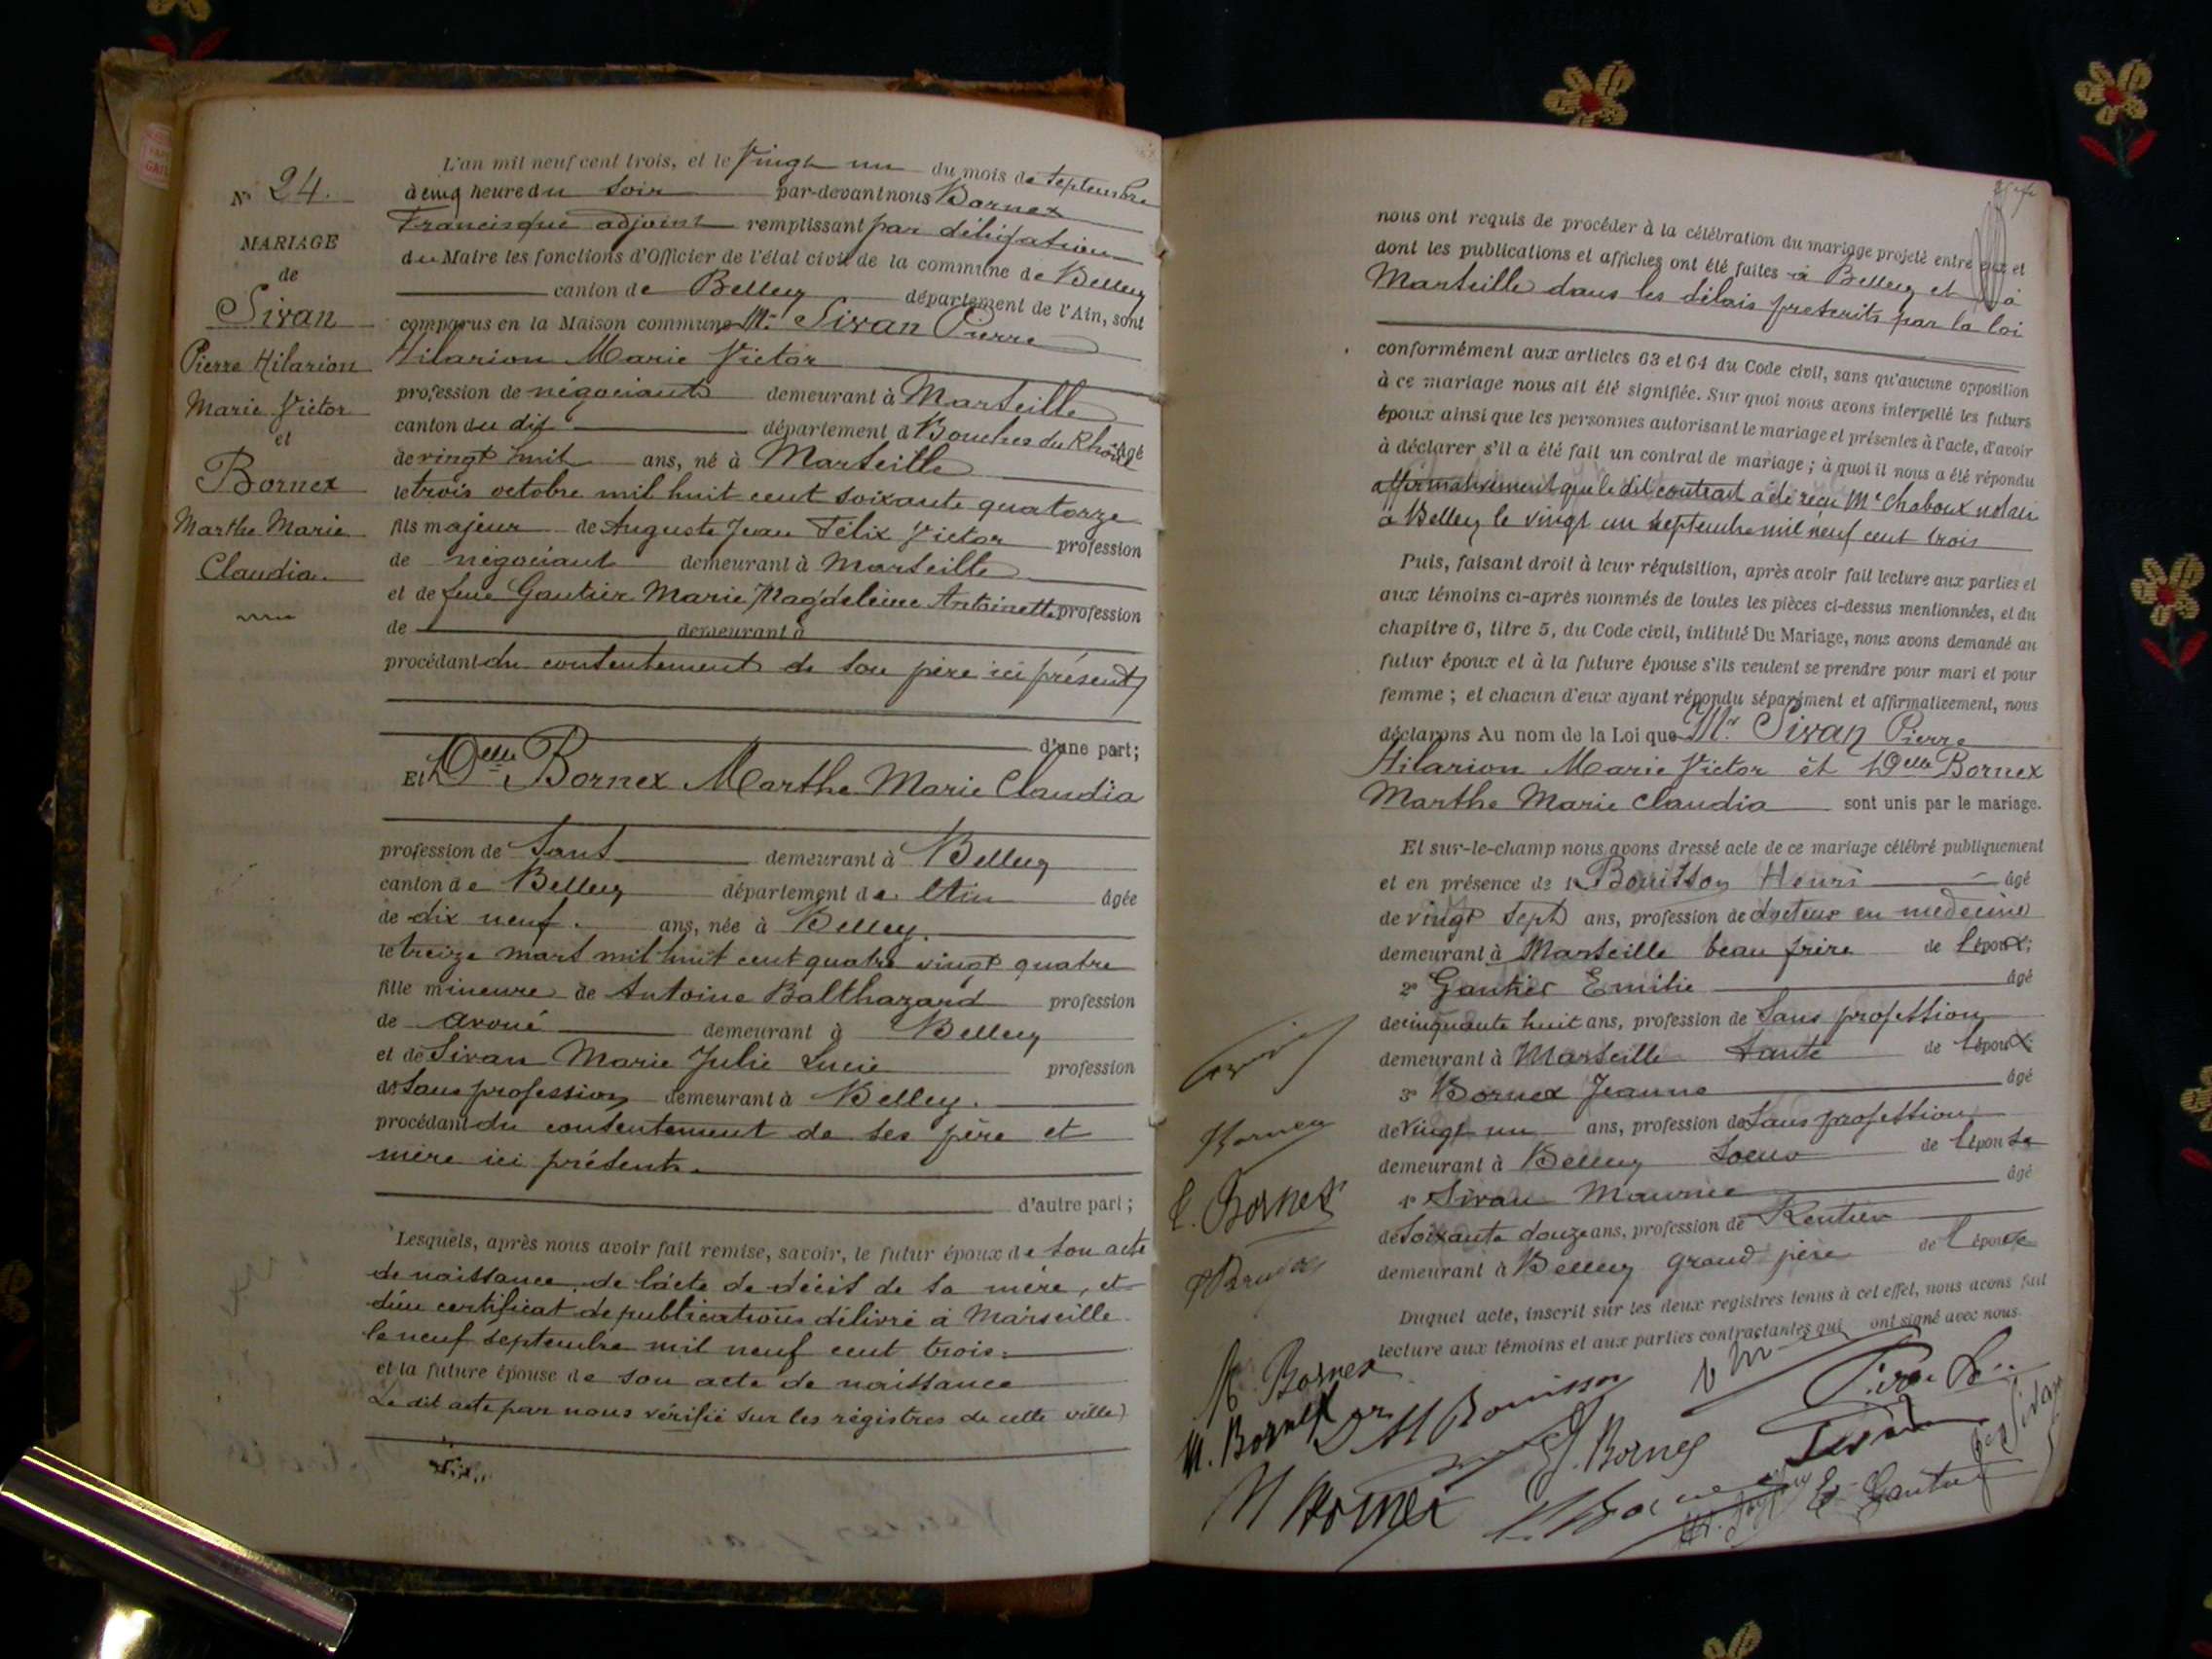 N° 24.
MARIAGE
de
Sivan
Pierre Hilarion
Marie Victor
et
Bornex
Marthe Marie
Claudia.
L'an mil neuf cent trois, et le Vingt un du mois de septembre
à cinq heure du soir par-devant nous Bornex
Francisque adjoint remplissant par délégation
du Maire les fonctions d'Officier de l'état civil de la commune de Belley
canton de Belley département de l'Ain, sont
comparus en la Maison commune Mr Sivan Pierre
Hilarion Marie Victor
profession de négociant demeurant à Marseille
canton du dit département d Bouches du Rhône âgé
de vingt huit ans, né à Marseille
le trois octobre mil huit cent soixante quatorze
fils majeur de Auguste Jean Félix Victor profession
de négociant demeurant à Marseille
et de feue Gautier Marie Magdeleine Antoinette profession
de demeurant à
procédant du consentement de son père ici présent
d'une part;
Et Delle Bornex Marthe Marie Claudia
profession de Sans demeurant à Belley
canton de Belley département de l'Ain âgée
de dix neuf. ans, née à Belley.
le treize mars mil huit cent quatre vingt quatre
fille mineure de Antoine Balthazard profession
de avoué demeurant à Belley
et de Sivan Marie Julie Lucie profession
de Sans profession demeurant à Belley.
procédant du consentement de ses père et
mère ici présents.
d'autre part;
Lesquels, après nous avoir fait remise, savoir, le futur époux de son acte
de naissance, de l'acte de décès de sa mère, et
d'un certificat de publications délivré à Marseille
le neuf septembre mil neuf cent trois.
et la future épouse de son acte de naissance
Le dit acte par nous vérifié sur les régistres de cette ville)
nous ont requis de procéder à la célébration du mariage projeté entre eux et
dont les publications et affiches ont été faites à Belley et à
Marseille dans les délais prescrits par la loi
conformément aux articles 63 et 64 du Code civil, sans qu'aucune opposition
à ce mariage nous ait été signifiée. Sur quoi nous avons interpellé les futurs
époux ainsi que les personnes autorisant le mariage et présentes à l'acte, d'avoir
à déclarer s'il a été fait un contrat de mariage; à quoi il nous a été répondu
affirmativement que le dit contrat a été reçu Me Chaboux notaire
à Belley le vingt un septembre mil neuf cent trois
Puis, faisant droit à leur réquisition, après avoir fait lecture aux parties et
aux témoins ci-après nommés de toutes les pièces ci-dessus mentionnées, et du
chapitre 6, titre 5, du Code civil, intitulé Du Mariage, nous avons demandé au
futur époux et à la future épouse s'ils veulent se prendre pour mari et pour
femme; et chacun d'eux ayant répondu séparément et affirmativement, nous
déclarons Au nom de la Loi que Mr. Sivan Pierre
Hilarion Marie Victor et Delle Bornex
Marthe Marie Claudia sont unis par le mariage.
Et sur-le-champ nous avons dressé acte de ce mariage célébré publiquement
et en présence de 1° Bouisson Henri âgé
de vingt sept ans, profession de docteur en médecine
demeurant à Marseille beau frère de l'époux;
2° Gautier Emilie âgé
de cinquante huit ans, profession de Sans profession
demeurant à Marseille tante de l'époux;
3° Bornex Jeanne âgé
de Vingt un ans, profession de Sans profession
demeurant à Belley Soeur de l'épouse
4° Sivan Maurice âgé
de Soixante douze ans, profession de Rentier
demeurant à Belley grand père de l'épouse
Duquel acte, inscrit sur les deux registres tenus à cet effet, nous avons fait
lecture aux témoins et aux parties contractantes qui ont signé avec nous.
Bornex
C. Bornex
M. Bornex
M. Bornex
Dr H Bouisson
J. Bornex
M Bornex
E. Gautier
Sivan